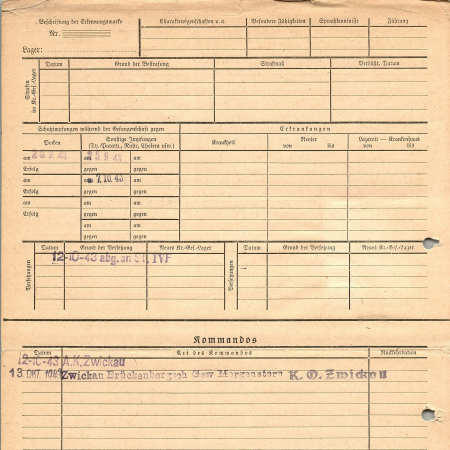 Beschriftung der Erkennungsmarke
Nr.
Lager:
Charaktereigenschaften u. a.
Besondere Fähigkeiten
Sprachkenntnisse
Führung
Strafen in Kr.-Gef.-Lager
Datum
Grund der Bestrafung
Strafmaß
Verbüßt, Datum
Schutzimpfungen während der Gefangenschaft gegen
Erkrankungen
Pocken
Sonstige Impfungen
(Ty.-Paraty., Ruhr, Cholera usw.)
Krankheit
Revier
von bis
Lazarett — Krankenhaus
von bis
am 9.43 am 9 43 am
Erfolg gegen gegen
am am 7.10.43 am
Erfolg gegen gegen
am am am
Erfolg gegen gegen
am am
gegen gegen
Versetzungen
Datum
Grund der Versetzung
Neues Kr.-Gef.-Lager
Versetzungen
Datum
Grund der Versetzung
Neues Kr.-Gef.-Lager
12-10-43 abg. an St. IV F
Kommandos
Datum
Art des Kommandos
Rückkehrdatum
12-10-43 A.K. Zwickau
13. OKT 1943 Zwickau Brückenbergsch Gew Morgenstern K. O. Zwickau